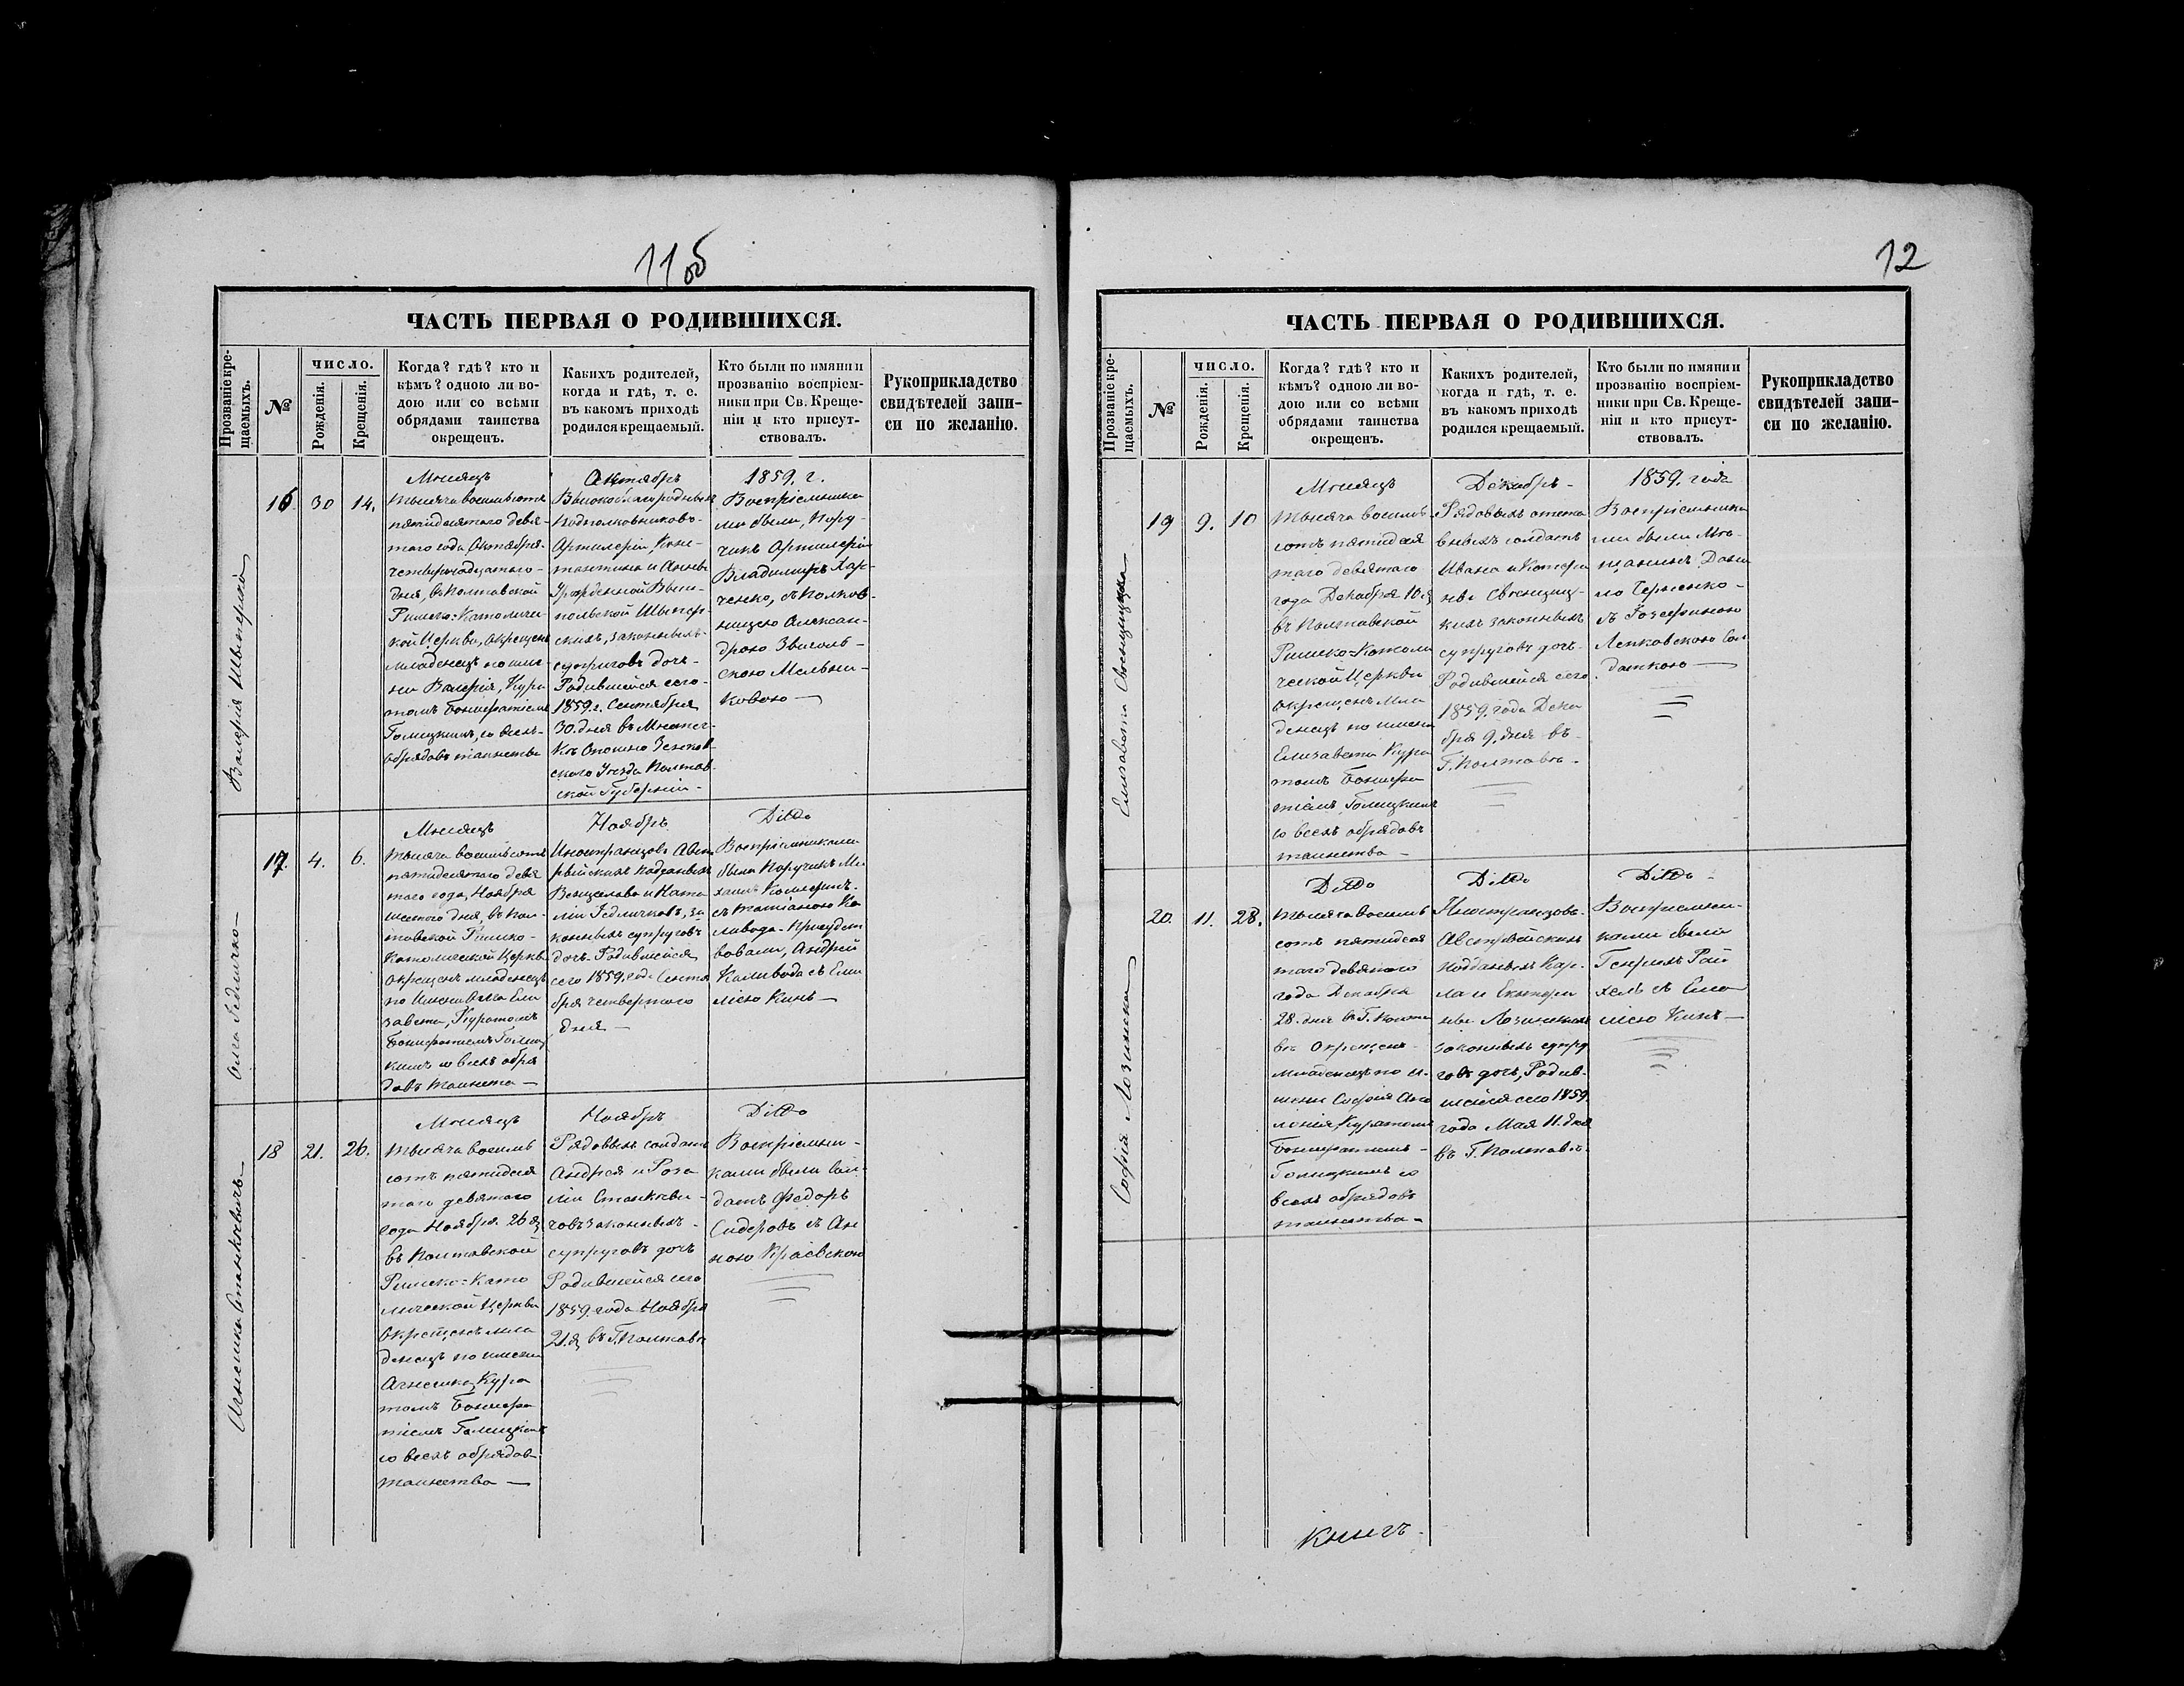 11об
ЧАСТЬ ПЕРВАЯ О РОДИВШИХСЯ.
Прозваніе кре-
щаемыхъ.
№
ЧИСЛО.
Рожденія.
Крещенія.
Когда? гдѣ? кто и
кѣмъ? одною ли во-
дою или со всѣми
обрядами таинства
окрещенъ.
Какихъ родителей,
когда и гдѣ, т. е.
въ какомъ приходѣ
родился крещаемый.
Кто были по имяни и
прозванію воспріем-
ники при Св. Креще-
ніи и кто присут-
ствовалъ.
Рукоприкладство
свидѣтелей запи-
си по желанію.
Валерія
16
30
14.
Мѣсяцъ
Тысяча восемьсотъ
пятидесятаго девя-
таго года Октября
четырнадцатаго
дня, въ Полтавской
Римско-Католичес
кой Церкви, окрещенъ
младенецъ по име-
ни Валерія, Кура
томъ Бонифатіемъ
Голицкимъ, со всехъ
обрядовъ таинства
Октябрь
Высокоблагородныхъ
Подполковниковъ
Артилеріи Конс-
тантина и Анны
Урожденной
скихъ, законныхъ
супруговъ дочь
Родившейся сего
1859 г. Сентября
30 дня въ Местеч-
кѣ Опошно Зеньков
скаго Уезда Полтав
ской Губерніи
1859. г.
Воспріемника
ми были, Пору-
чикъ Артилеріи
Владимиръ Хар-
ченко, съ Полков-
ницею Алексан-
дрою
Мельни-
ковою
Ольга Едличко
17.
4.
6.
Мѣсяцъ
Тысяча восемьсотъ
пятидесятаго девя
таго года, Ноября
шестаго дня, въ Пол-
тавской Римско-
Католической Церкви
окрещенъ младенецъ
по имени Ольга Ели
завета, Куратомъ
Бонифатіемъ Голиц
кимъ со всехъ обря
довъ таинства
Ноябрь
Иностранцовъ Авст
рійскихъ подданыхъ
Венцеслава и Ната
ліи Едличковъ, за
конныхъ супруговъ
дочь Родившейся
сего 1859 года Сентя
бря четвертаго
дня
Ditto
Воспріемниками
были Поручикъ Ми
хаилъ
съ Татіаною Ка
ливода. Присудст
вовали, Андрей
Каливода съ Еми
ліею Кинъ
Агнешка Станкевичъ
18
21.
26.
Мѣсяцъ
Тысяча восемь
сотъ пятидеся
таго девятаго
года Ноября 26 д
въ Полтавской
Римско-Като
лической Церкви
Окрещенъ мла
денецъ по имени
Агнешка, Кура
томъ Бонифа
тіемъ Голицкимъ
со всехъ обрядовъ
таинства
Ноябрь
Рядовыхъ солдатъ
Андрея и Роза
ліи Станкеви-
човъ законныхъ
супруговъ дочь
Родившейся сего
1859 года Ноября
21 д въ Г. Полтавѣ
Ditto
Воспріемни-
ками были Сол-
датъ Федоръ
Сидеровъ съ Ан
ною Краевскою
12
ЧАСТЬ ПЕРВАЯ О РОДИВШИХСЯ.
Прозваніе кре-
щаемыхъ.
№
ЧИСЛО.
Рожденія.
Крещенія.
Когда? гдѣ? кто и
кѣмъ? одною ли во-
дою или со всѣми
обрядами таинства
окрещенъ.
Какихъ родителей,
когда и гдѣ, т. е.
въ какомъ приходѣ
родился крещаемый.
Кто были по имяни и
прозванію воспріем-
ники при Св. Креще-
ніи и кто присут-
ствовалъ.
Рукоприкладство
свидѣтелей запи-
си по желанію.
Елизавета Свенцицка
19
9.
10
Мѣсяцъ
Тысяча восемь
сотъ пятидеся
таго девятаго
года Декабря 10 д
въ Полтавской
Римско-Католи
ческой Церкви
Окрещенъ мла
денецъ по имени
Елизавета Кура
томъ Бонифа
тіемъ Голицкимъ
со всехъ обрядовъ
таинства
Декабрь
Рядовыхъ отста
вныхъ солдатъ
Ивана и Катери
ны Свенциц-
кихъ законныхъ
супруговъ дочь
Родившейся сего
1859 года Дека
бря 9 дня въ
Г. Полтавѣ
1859. года
Воспріемника
ми были Мѣ-
щанинъ Дани
ло Черненко
съ Іозефиною
Лепковскою Сол
даткою
Софія Лозинска
20.
11.
28.
Ditto
Тысяча восемь
сотъ пятидеся
таго девятаго
года Декабря
28. дня въ Г. Полта
вѣ Окрещенъ
младенецъ по и-
мени Софія
Куратомъ
Бонифатіемъ
Голицкимъ со
всехъ обрядовъ
таинства
Ditto
Иностранцовъ
Австрійскихъ
подданыхъ Кар-
ла и Екатери
ны Лозинскихъ
законныхъ супру
говъ дочь, Родив-
шейся сего 1859
года Мая 11. дня
въ Г. Полтавѣ
Ditto
Воспріемни-
ками были
Генрихъ Рай
хель съ Еми
ліею Кинъ